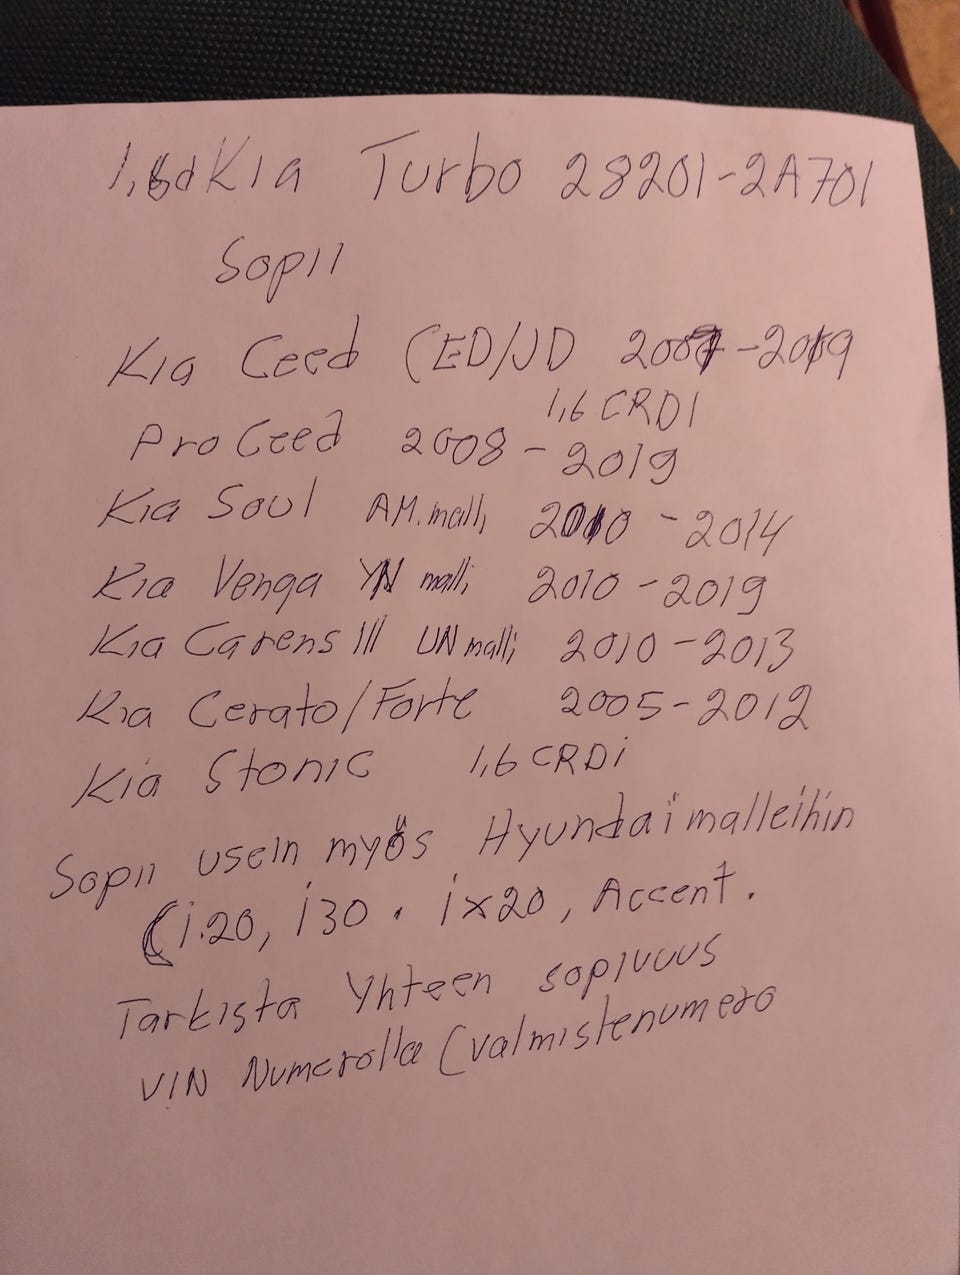 1,6d Kia Turbo 28201-2A701
Sopii
Kia Ceed (ED/JD 2007-2019
1,6 CRDI
Pro Ceed 2008-2019
Kia Soul AM.malli 2010-2014
Kia Venga YN malli 2010-2019
Kia Carens III UN malli 2010-2013
Kia Cerato/Forte 2005-2012
Kia Stonic 1,6 CRDi
Sopii usein myös Hyundai malleihin
(i.20, i30. ix20, Accent.
Tarkista Yhteen sopivuus
VIN Numerolla (valmistenumero